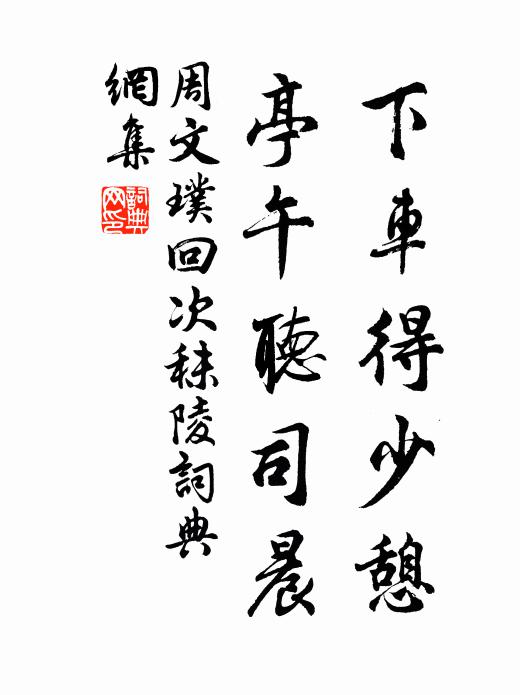 下車得少憩
亭午聽司晨
周文璞回次秣陵詞典
網集
詞典
網印